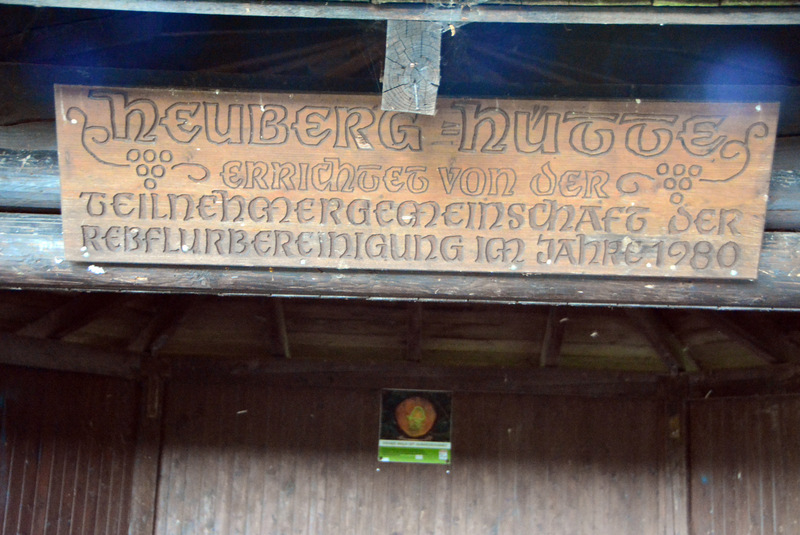 HEUBERG = HÜTTE
ERRICHTET VON DER
TEILNEHMERGEMEINSCHAFT DER
REBFLURBEREINIGUNG IM JAHRE 1980